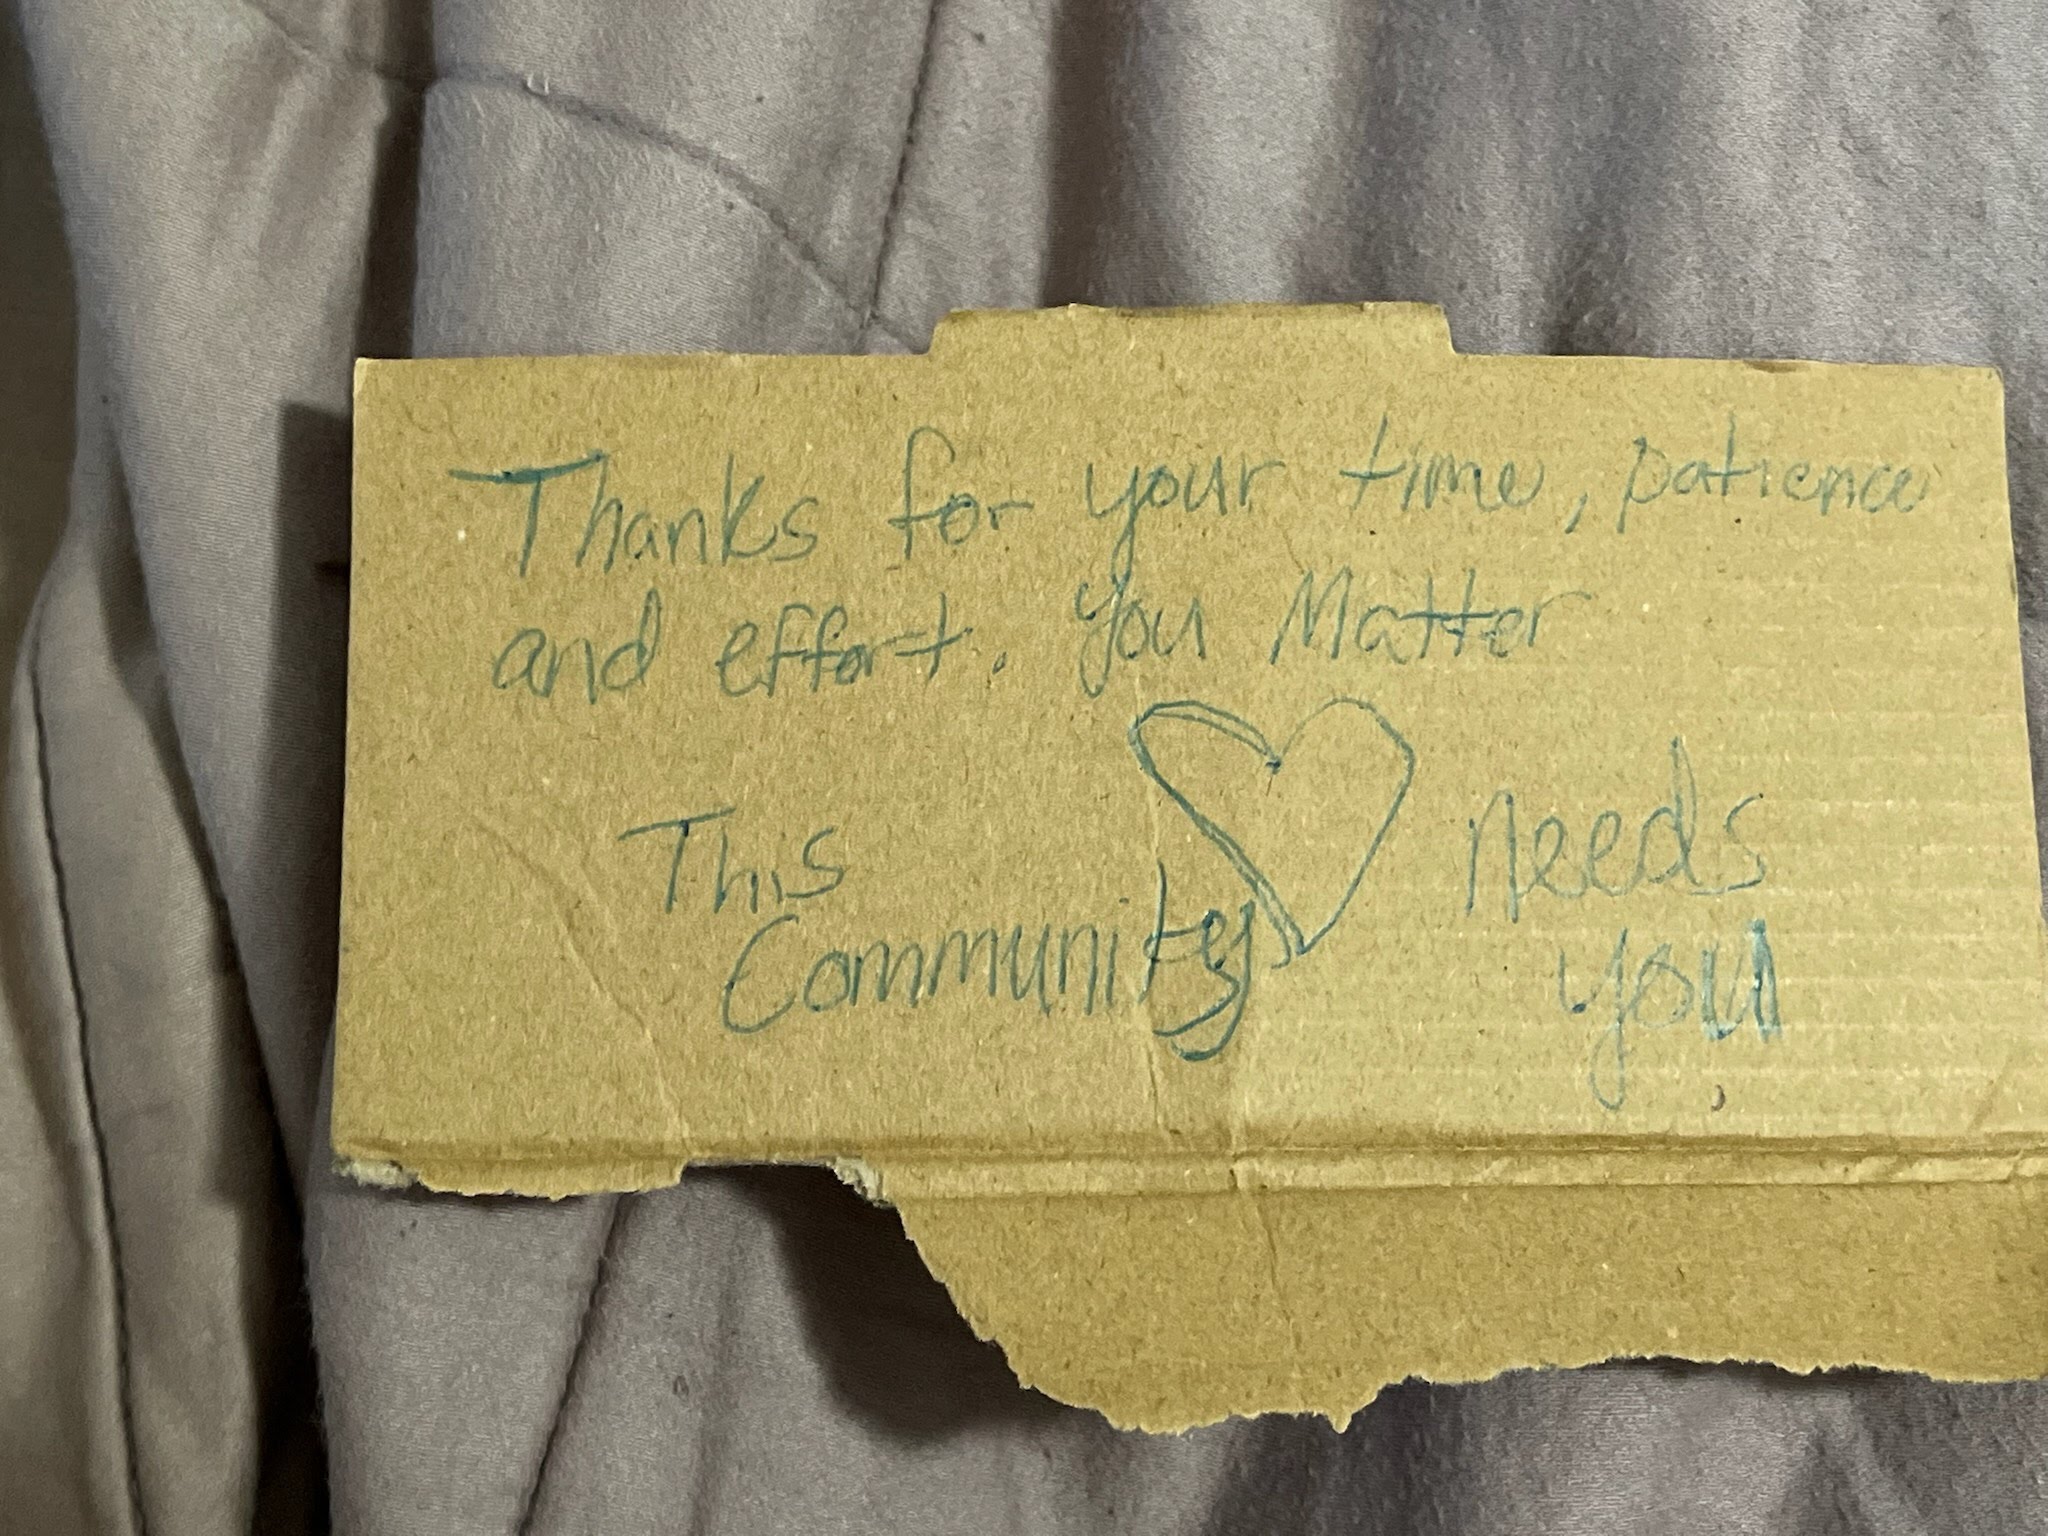 Thanks for your time, patience
and effort. You Matter
This needs
Community you